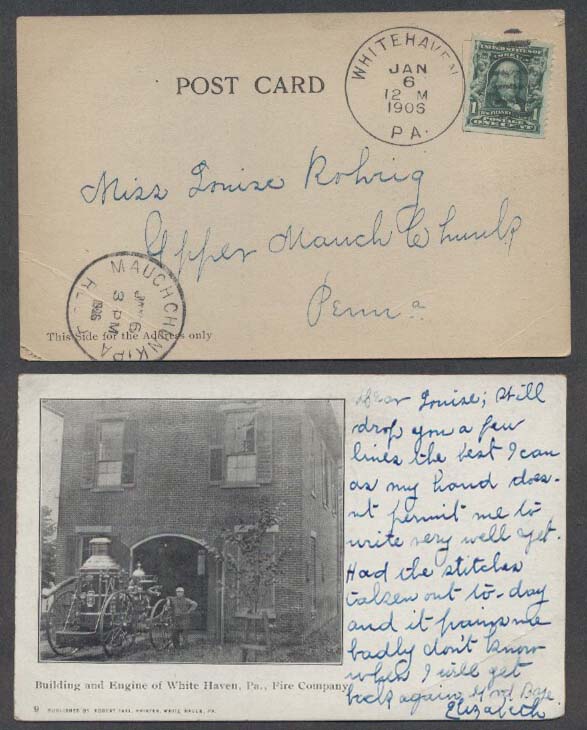 POST CARD
WHITEHAVEN
JAN
6
12 M
1906
PA.
UNITED STATES OF
AMERICA
1 1
POSTAGE
ONE CENT
Miss Louise Rohrig
Upper Mauch Chunk
Penna
MAUCH CHUNK, PA
6
3 PM
1906
This Side for the Address only
Dear Louise; Will
drop you a few
lines the best I can
as my hand does-
nt permit me to
write very well yet.
Had the stitches
taken out to-day
and it pains me
badly don't know
when I will get
back again. Good Bye
Elizabeth
Building and Engine of White Haven, Pa., Fire Company
9 PUBLISHED BY ROBERT PRINTER, WHITE HAVEN, PA.